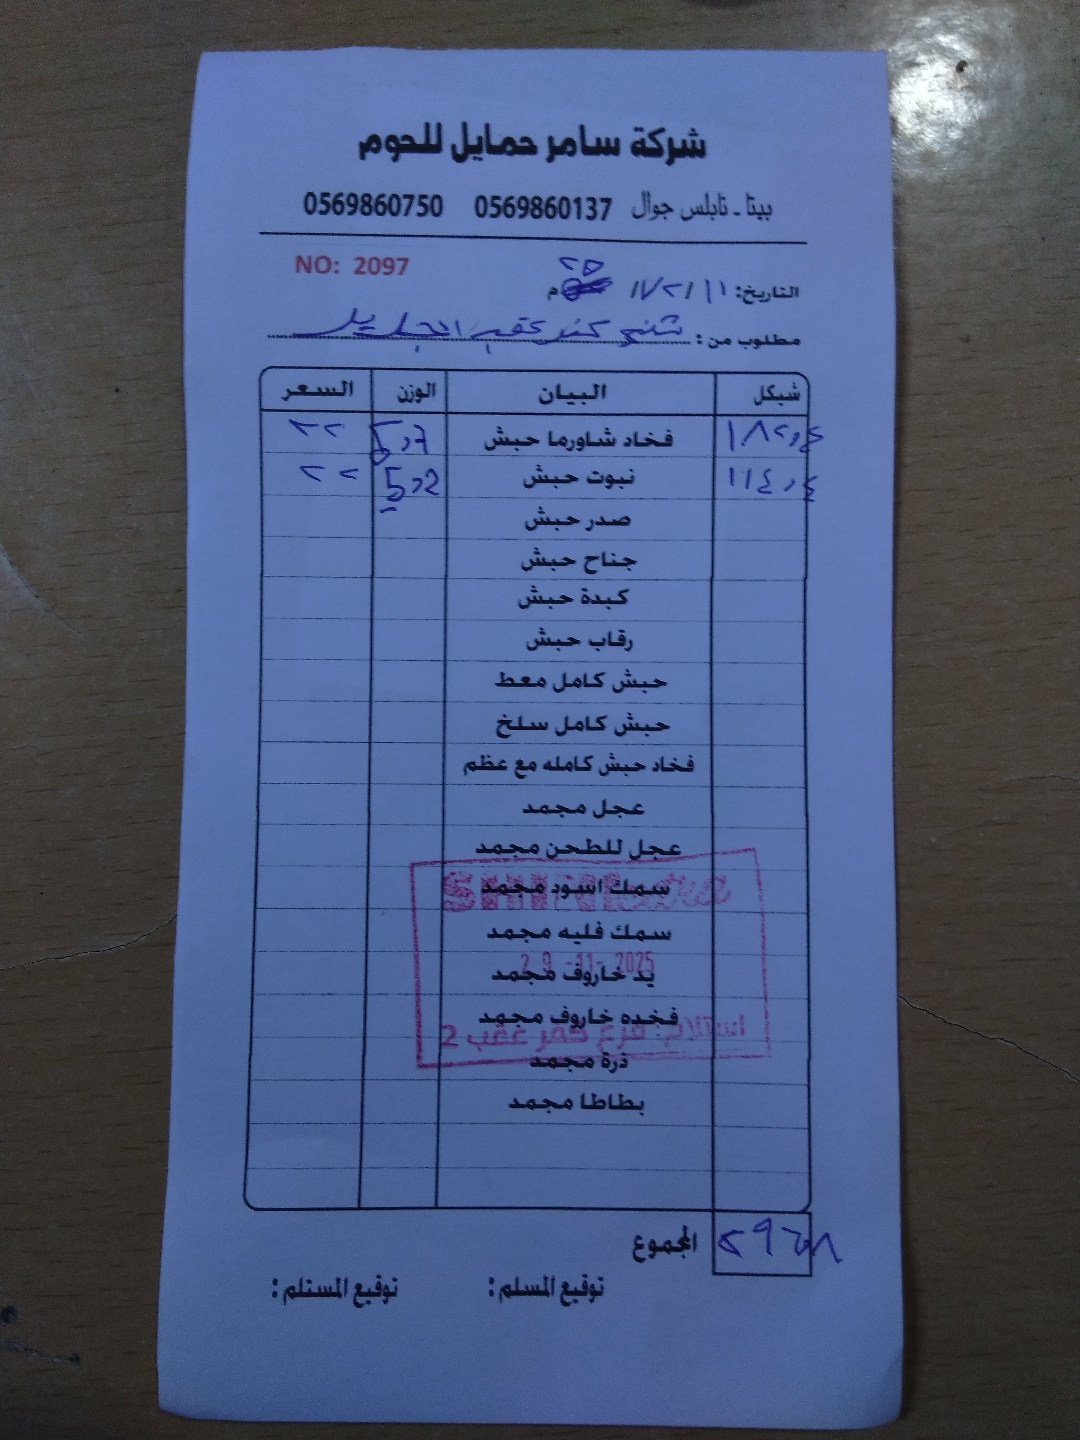 شركة سامر حمايل للحوم
بيتا - نابلس جوال 0569860137 0569860750
NO: 2097
التاريخ: ١١/٢/ ٢٥ م
مطلوب من: الجديد
شيكل البيان الوزن السعر
١٨٢,٤ فخاد شاورما حبش ٢٢
١١٤,٤ نبوت حبش 5,2 ٢٢
صدر حبش
جناح حبش
كبدة حبش
رقاب حبش
حبش كامل معط
حبش كامل سلخ
فخاد حبش كامله مع عظم
عجل مجمد
عجل للطحن مجمد
سمك اسود مجمد
سمك فليه مجمد
29 -11- 2025
يد خاروف مجمد
فخده خاروف مجمد
استلام: فرع كفر عقب 2
ذرة مجمد
بطاطا مجمد
المجموع ٢٩٦,٨
توقيع المسلم: توقيع المستلم: